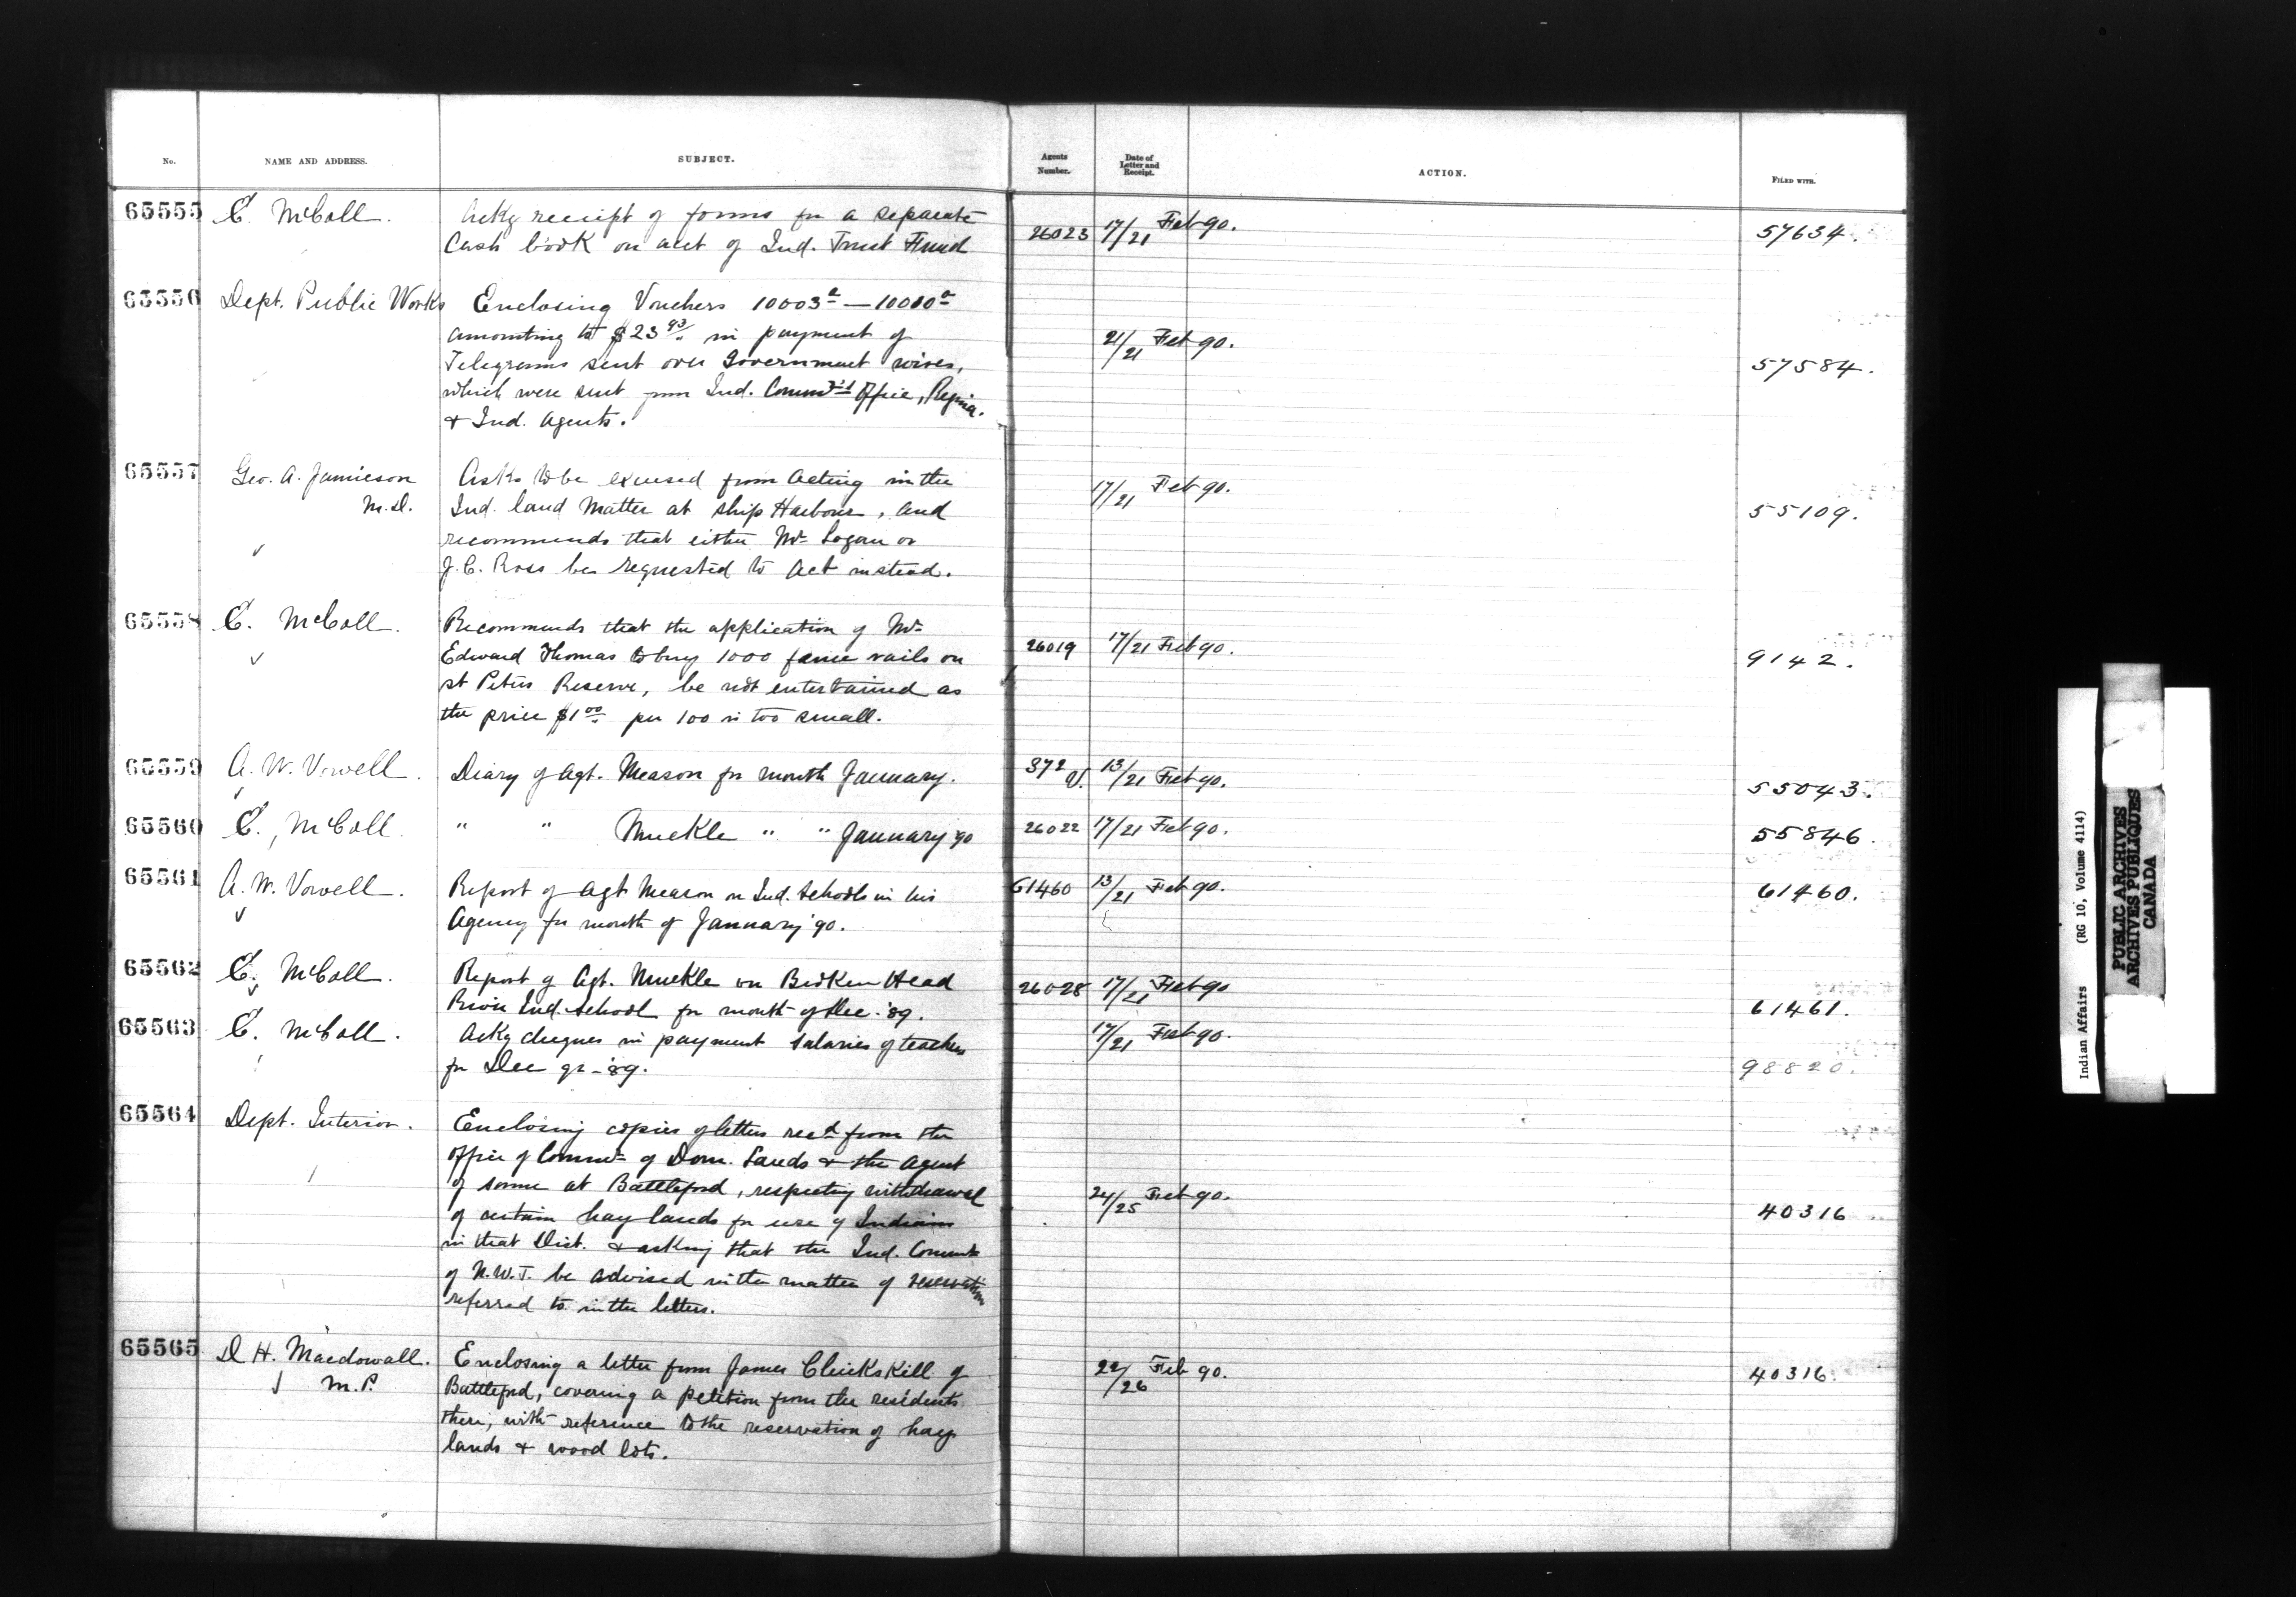 No. NAME AND ADDRESS. SUBJECT. Agents Number. Date of Letter and Receipt. ACTION. FILED WITH.
65555 E. McColl. Ackg receipt of forms for a separate
Cash book on acct of Ind. Trust Fund 26023 17/21 Feb 90. 57634.
65556 Dept. Public Works Enclosing Vouchers 10003a — 10080a
amounting to $23 93/.. in payment of
Telegrams sent over Government wires, 21/21 Feb 90. 57584.
which were sent from Ind. Commr's Office, Regina.
& Ind. Agents.
65557 Geo. A. Jamieson Asks to be excused from acting in the
M.D. Ind. land matter at Ship Harbour, and 17/21 Feb 90. 55109.
recommends that either Mr Logan or
J.C. Ross be requested to act instead.
65558 E. McColl. Recommends that the application of Mr
Edward Thomas to buy 1000 fence rails on 26019 17/21 Feb 90. 9142.
St Peters Reserve, be not entertained as
the price $1 00 per 100 is too small.
65559 A. W. Vowell. Diary of Agt. Meason for month January. 372 V. 13/21 Feb 90. 55043.
65560 E. McColl. " " Muckle " " January '90 26022 17/21 Feb 90. 55846.
65561 A. W. Vowell. Report of Agt Meason on Ind. Schools in his 61460 13/21 Feb 90. 61460.
Agency for month of January '90.
65562 E. McColl. Report of Agt. Muckle on Broken Head 26028 17/21 Feb 90
River Ind. School for month of Dec. '89. 61461.
65563 E. McColl. Ackg cheques in payment salaries of teachers 17/21 Feb 90.
for Dec qr - '89. 98820.
65564 Dept. Interior. Enclosing copies of letters recd from the
Office of Commr of Dom. Lands & the Agent
of same at Battleford, respecting withdrawal 24/25 Feb 90.
of certain hay lands for use of Indians 40316
in that Dist. & asking that the Ind. Commr
of N.W.T. be advised in the matter of reservation
referred to in the letters.
65565 D H. Macdowall. Enclosing a letter from James Clinkskill of 22/26 Feb 90. 40316.
M.P. Battleford, covering a petition from the residents
there, with reference to the reservation of hay
lands & wood lots.
Indian Affairs (RG 10, Volume 4114)
PUBLIC ARCHIVES
ARCHIVES PUBLIQUES
CANADA